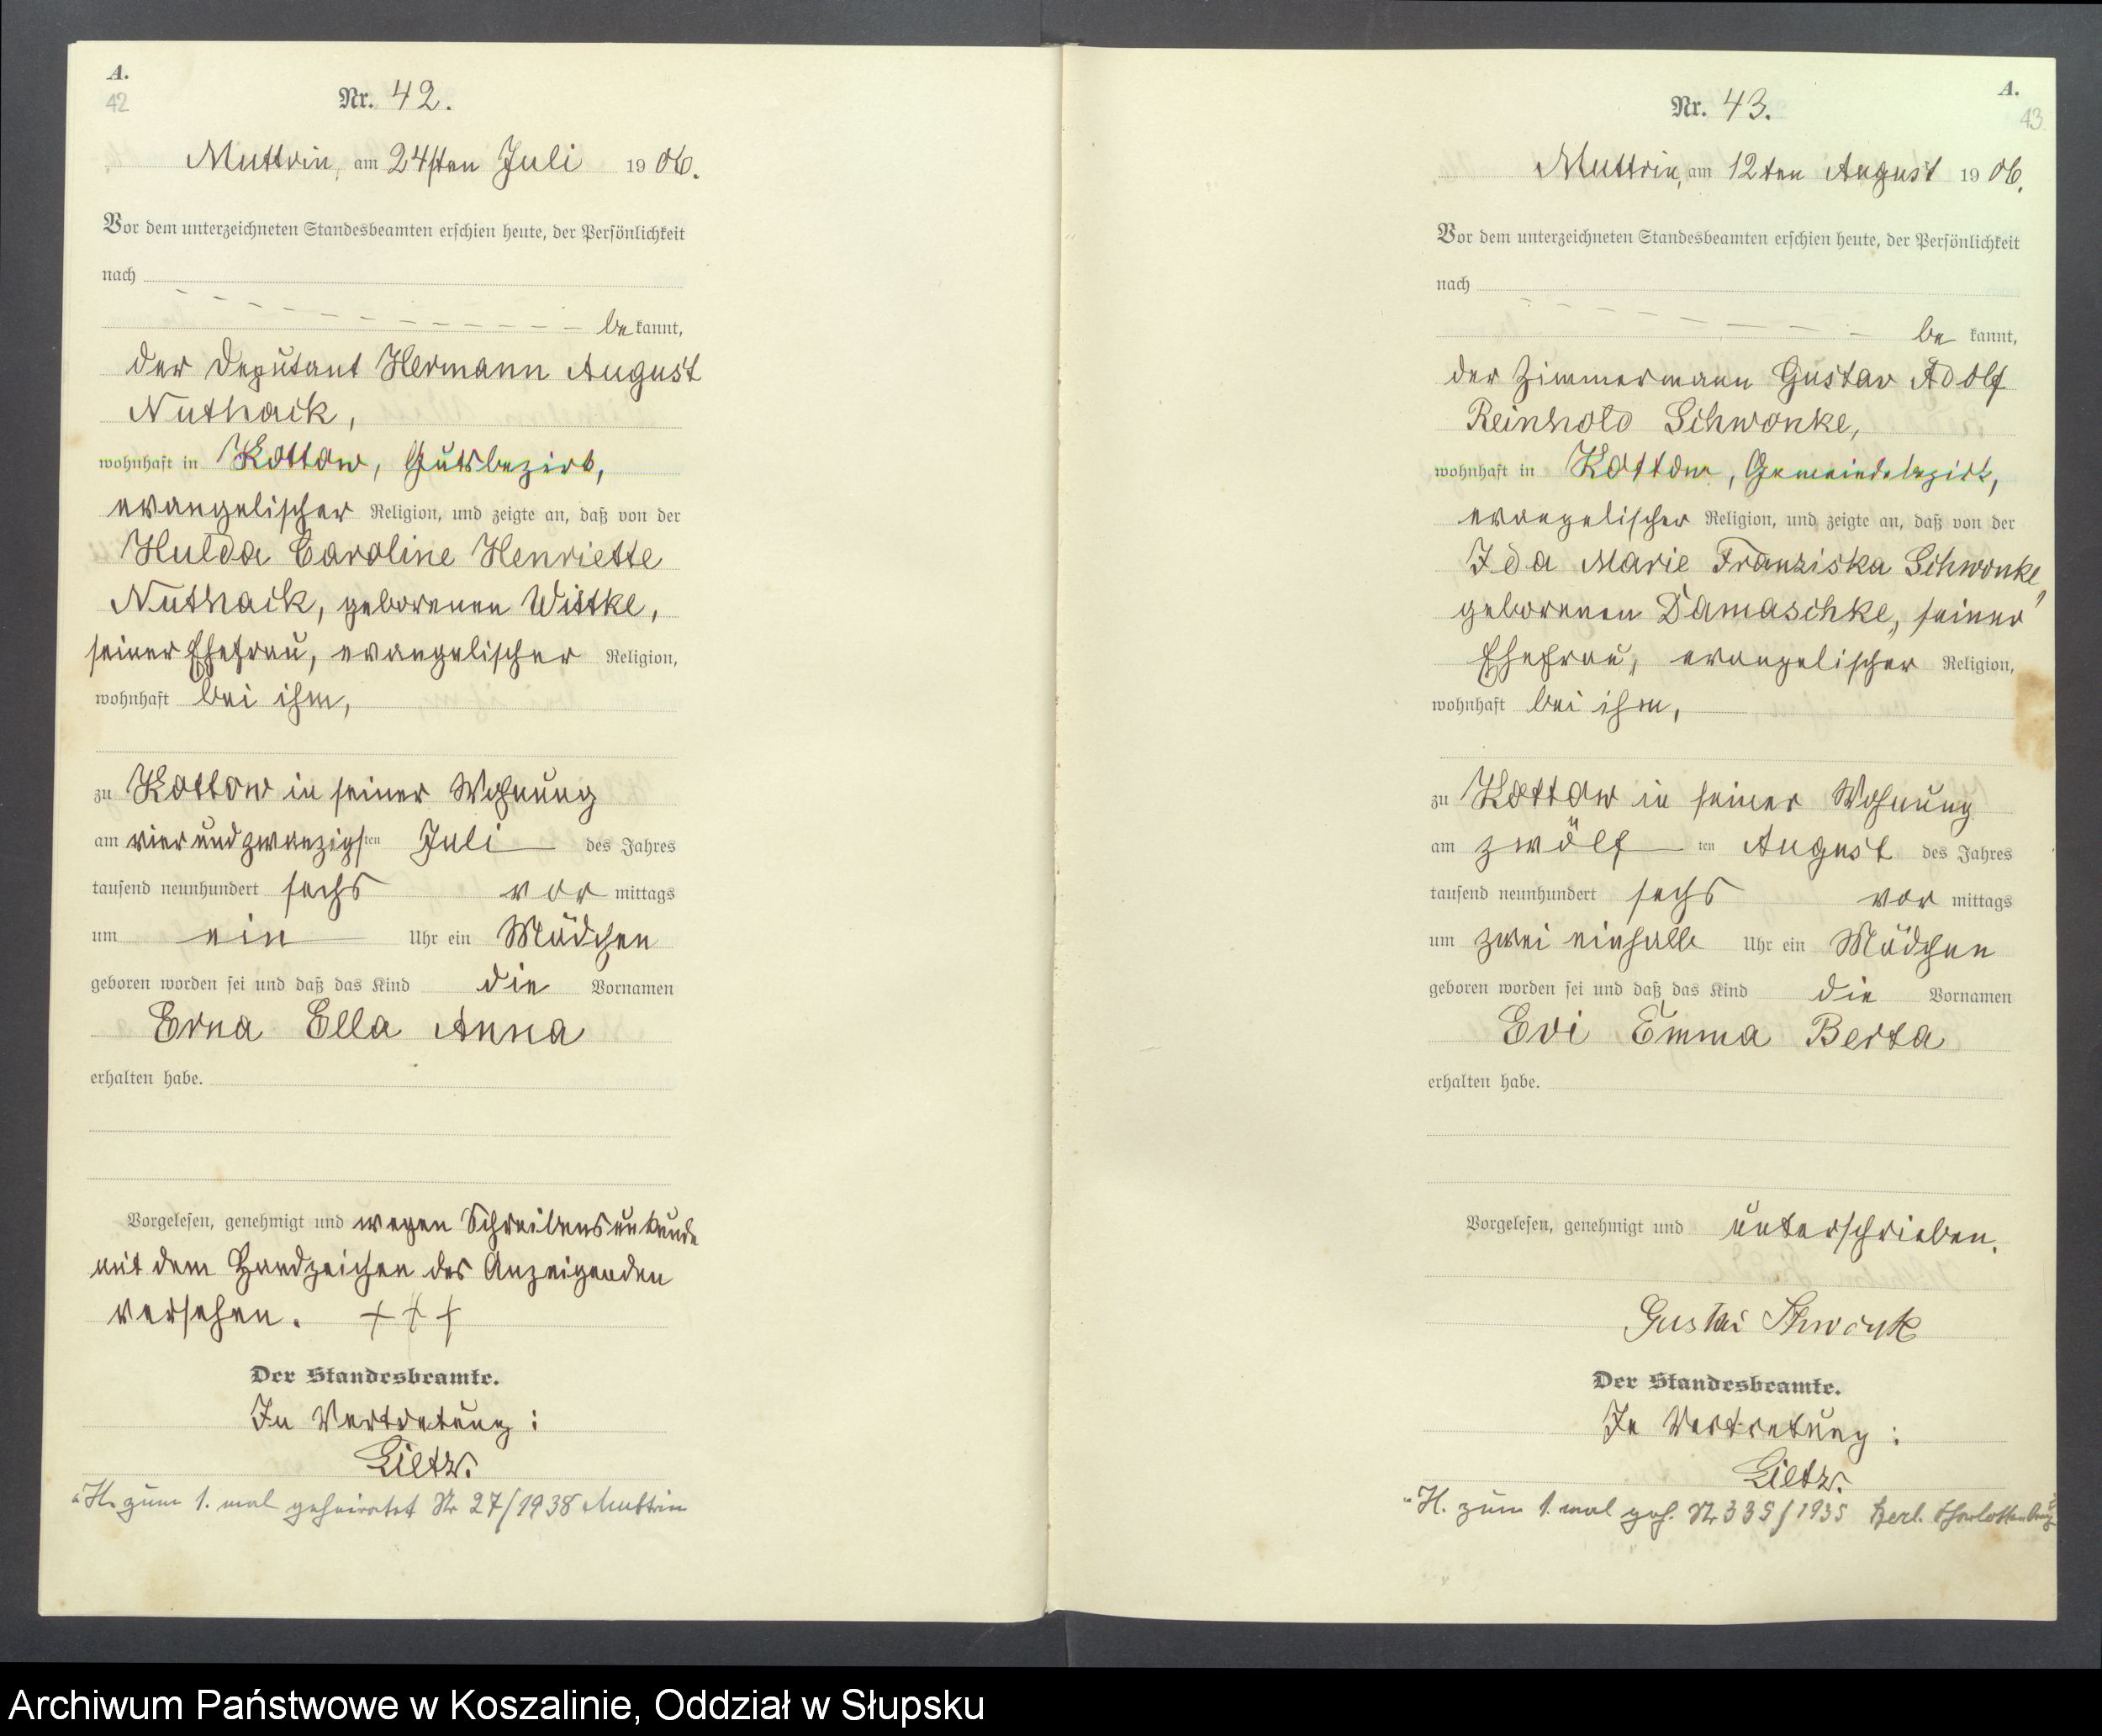 A.
42
Nr. 42.
Muttrin, am 24sten Juli 1906.
Vor dem unterzeichneten Standesbeamten erschien heute, der Persönlichkeit
nach
be kannt,
der Deputant Hermann August
Nuthack,
wohnhaft in Kottow, Gutsbezirk,
evangelischer Religion, und zeigte an, daß von der
Hulda Caroline Henriette
Nuthack, geborenen Wittke,
seiner Ehefrau, evangelischer Religion,
wohnhaft bei ihm,
zu Kottow in seiner Wohnung
am vierundzwanzigsten Juli des Jahres
tausend neunhundert sechs vor mittags
um ein Uhr ein Mädchen
geboren worden sei und daß das Kind die Vornamen
Erna Ella Anna
erhalten habe.
Vorgelesen, genehmigt und wegen Schreibensunkunde
mit dem Handzeichen des Anzeigenden
versehen. + + +
Der Standesbeamte.
In Vertretung:
Lietz.
H. zum 1. mal geheiratet Nr 27/1938 Muttrin
A.
43
Nr. 43.
Muttrin, am 12ten August 1906.
Vor dem unterzeichneten Standesbeamten erschien heute, der Persönlichkeit
nach
be kannt,
der Zimmermann Gustav Adolf
Reinhold Schwonke,
wohnhaft in Kottow, Gemeindebezirk,
evangelischer Religion, und zeigte an, daß von der
Ida Marie Franziska Schwonke,
geborenen Damaschke, seiner
Ehefrau, evangelischer Religion,
wohnhaft bei ihm,
zu Kottow in seiner Wohnung
am zwölf ten August des Jahres
tausend neunhundert sechs vor mittags
um zwei einhalb Uhr ein Mädchen
geboren worden sei und daß das Kind die Vornamen
Evi Emma Berta
erhalten habe.
Vorgelesen, genehmigt und unterschrieben.
Gustav Schwonke
Der Standesbeamte.
In Vertretung:
Lietz.
H. zum 1. mal geh. Nr 335/1935 Berl. Charlottenburg
Archiwum Państwowe w Koszalinie, Oddział w Słupsku